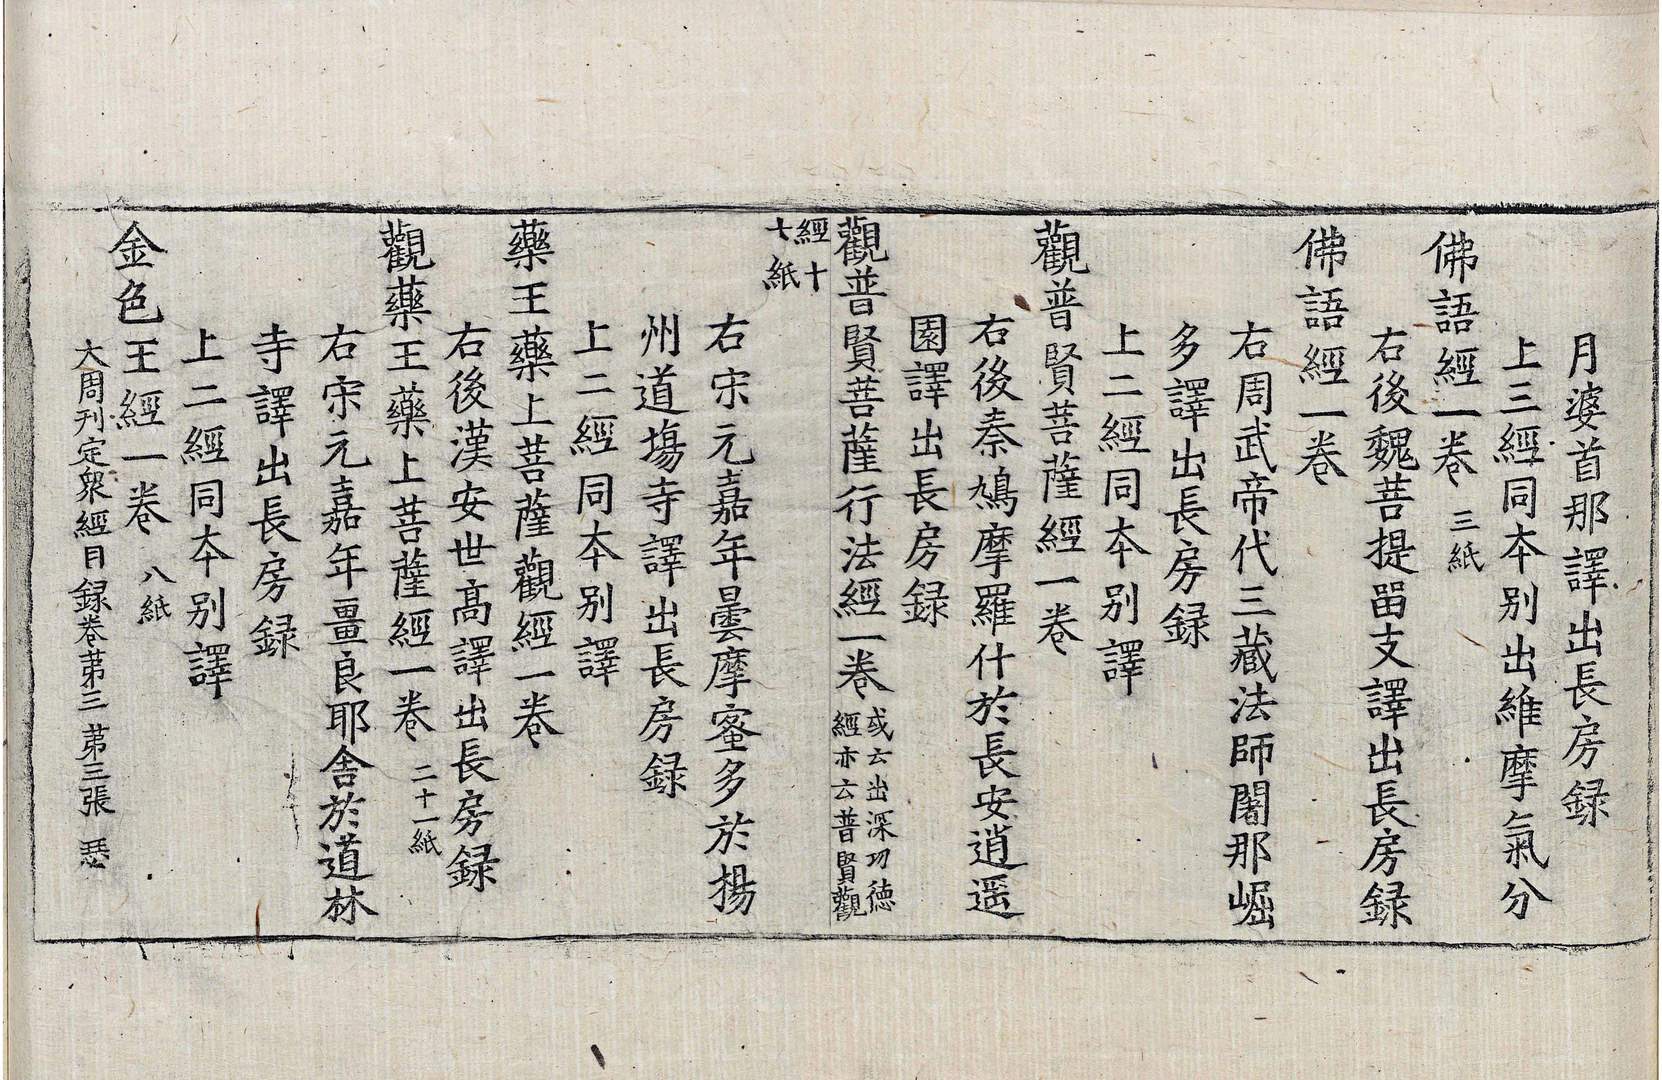 月婆首那譯出長房録
上三經同本别出維摩氣分
佛語經一卷 三紙
右後魏菩提畱支譯出長房録
佛語經一卷
右周武帝代三藏法師闍那崛
多譯出長房録
上二經同本别譯
觀普賢菩薩經一卷
右後秦鳩摩羅什於長安逍遥
園譯出長房録
觀普賢菩薩行法經一卷 或云出深功德
經亦云普賢觀
經十
七紙
右宋元嘉年曇摩蜜多於揚
州道塲寺譯出長房録
上二經同本别譯
藥王藥上菩薩觀經一卷
右後漢安世髙譯出長房録
觀藥王藥上菩薩經一卷 二十一紙
右宋元嘉年畺良耶舎於道林
寺譯出長房録
上二經同本别譯
金色王經一卷 八紙
大周刊定衆經目録卷苐三 苐三張 惡